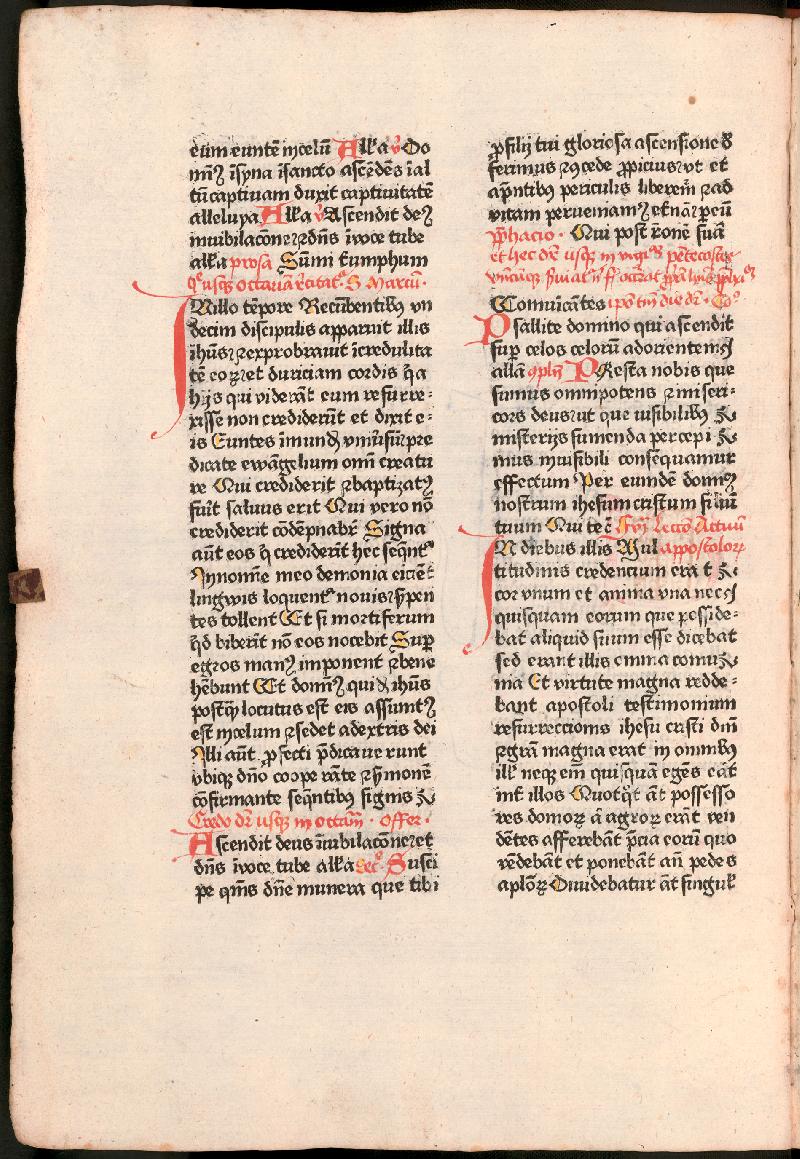 eum euntē in celū Allᷓa ꝟ Do
minꝰ ī syna ī sancto ascēdēs ī al
tū captiuam duxit captiuitatē
alleluya Allᷓa ꝟ Ascendit deꝰ
in iubilacōne ⁊ dn̄s ī voce tube
allᷓa prosa Sūmi t̄umphum
usqꝫ octauā S Marcū
In illo tēpore Recūbentibꝫ vn
decim discipulis apparuit illis
ihūs ⁊ exprobrauit īcredulita
tē eoꝝ et duriciam cordis q̄a
hijs qui viderāt eum resurre-
xisse non crediderūt et dixit e-
is Euntes ī mundū vniūsū pre
dicate ewāgelium om̄i creatu
re Qui crediderit ⁊ baptizatꝰ
fuīt saluus erit Qui vero nō
crediderit cōdēpnabr̄ Signa
aūt eos q̄ crediderīt hec seqn̄tᷓ
In nomīe meo demonia eicīēt
lingwis loquentᷓ nouis ⁊ s̄pen
tes tollent Et si mortiferum
qd̄ biberīt nō eos nocebit Suꝑ
egros manꝰ imponent ⁊ bene
hēbunt Et dominꝰ quidē ihūs
postqᷓ locutus est eis assumtꝰ
est in celum ⁊ sedet a dextris dei
Illi aūt ꝓfecti p̄dicaue runt
vbiqꝫ dn̄o coope rāte ⁊ s̄monē
cōfirmante seqn̄tibꝫ signis
Credo dr̄ usqꝫ in octauā · Offer ·
Ascendit deus ī iubilacōne et
dn̄s ī voce tube allᷓa Sec̄ Susci
pe qm̄s dn̄e munera que tibi
ꝓ filij tui gloriosa ascensione d̄
ferimus ⁊ ꝯcede ꝓpicius vt et
a p̄ntibꝫ periculis liberem̄ ⁊ ad
vitam perueniamꝰ et̄nā ꝑ eū
P̄fhacio · Qui post r̄onē suā
et hec dr̄ usqꝫ in vigiᷓ penthecostes

Comuīcantes Co
Psallite domino qui ascendit
suꝑ celos celorū ad orientemꝫ
allā ꝯplū PResta nobis que
sumus omnipotens ⁊ miseri-
cors deus vt que visibilibꝫ
misterijs sumenda percepi
mus inuisibili consequamur
effectum Per eundē dominū
nostrum ihesum cristum filiū
tuum Qui tec̄ Lectō Actuū
IN diebus illis Mul appostoloꝝ
titudinis credencium erat
cor vnum et anima vna nec
quisquam eorum que posside-
bat aliquid suum esse dicebat
sed erant illis omnia comu
nia Et virtute magna redde-
bant apostoli testimonium
resurrecciōnis ihesu cristi dn̄i
⁊ grā magna erat in omnibꝫ
ill̄ neqꝫ em̄ quisquā egēs erāt
int̄ illos Quotqͦt āt possesso
res domoꝝ ā agroꝝ erāt ven
dētes afferebāt p̄cia eorū quo
vēdebāt et ponebāt an̄ pedes
apl̄oꝝ Diuidebatur āt singul̄